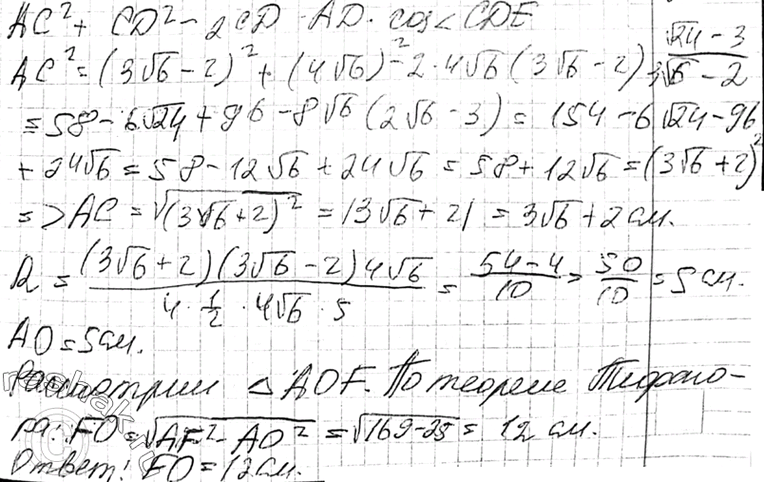 AC² + CD² - 2CD · AD · cos∠CDE
AC² = (3√6 - 2)² + (4√6)² - 2 · 4√6 (3√6 - 2) (√24 - 3)/(3√6 - 2)
= 58 - 6√24 + 96 - 8√6 (2√6 - 3) = 154 - 6√24 - 96
+ 24√6 = 58 - 12√6 + 24√6 = 58 + 12√6 = (3√6 + 2)²
=> AC = √(3√6+2)² = |3√6 + 2| = 3√6 + 2 см.
R = ((3√6+2)(3√6-2)4√6)/(4 · 1/2 · 4√6 · 5) = (54-4)/10 = 50/10 = 5 см.
AO = 5 см.
Рассмотрим △AOF. По теореме Пифаго-
ра: FO = √AF² - AO² = √169-25 = 12 см.
Ответ: FO = 12 см.